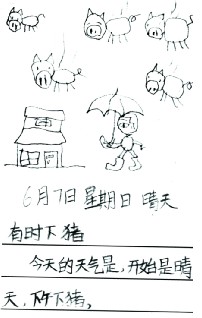 6月7日 星期日 晴天
有时下猪
今天的天气是，开始是晴
天，下午下猪，